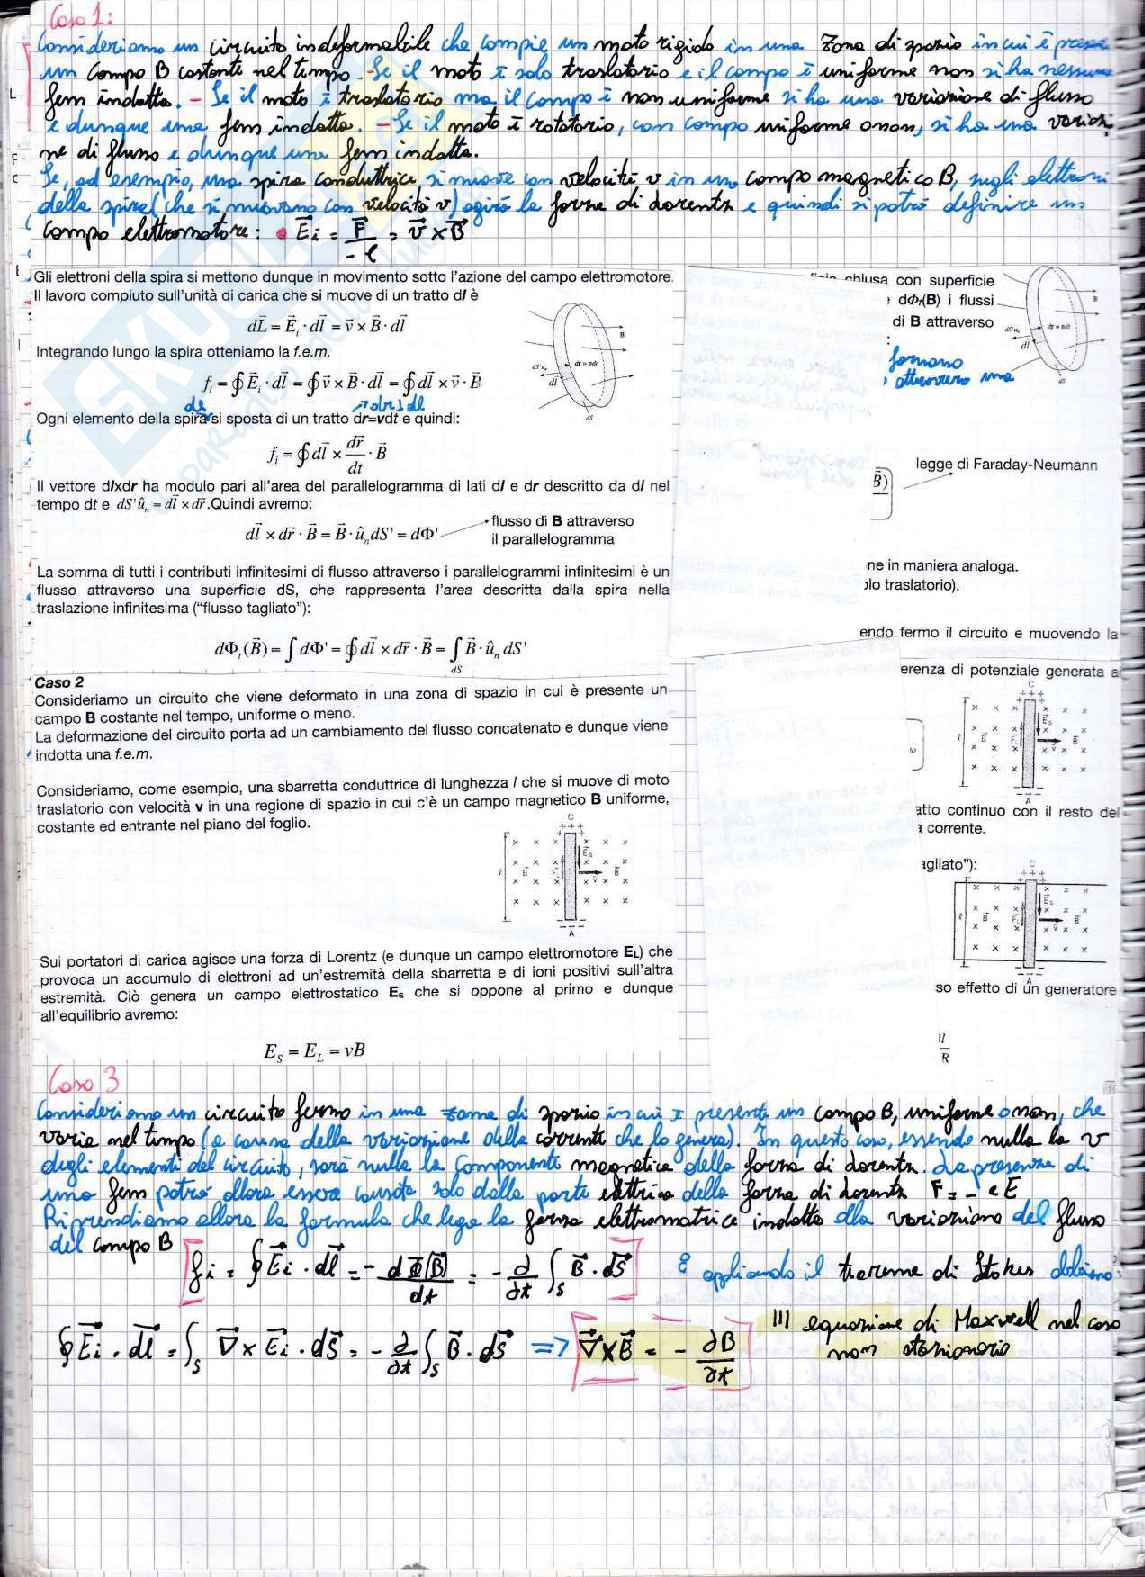 Caso 1:
Consideriamo un circuito indeformabile che compie un moto rigido in una zona di spazio in cui è
un campo B costante nel tempo - Se il moto è solo traslatorio e il campo è uniforme non si ha nessuna
fem indotta. - Se il moto è traslatorio ma il campo è non uniforme si ha una variazione di flusso
e dunque una fem indotta. - Se il moto è rotatorio, con campo uniforme o non, si ha una varia
ne di flusso e dunque una fem indotta.
Se, ad esempio, una spira conduttrice, si muove con velocità v in un campo magnetico B, sugli elettroni
della spira (che si muovono con velocità v) agirà la forza di Lorentz e quindi si potrà definire un
campo elettromotore: • E⃗i = F⃗/-e = v⃗ × B⃗
Gli elettroni della spira si mettono dunque in movimento sotto l'azione del campo elettromotore.
Il lavoro compiuto sull'unità di carica che si muove di un tratto dl è
dL⃗ = E⃗i · dl⃗ = v⃗ × B⃗ · dl⃗
Integrando lungo la spira otteniamo la f.e.m.
f = ∮E⃗i · dl⃗ = ∮v⃗ × B⃗ · dl⃗ = ∮dl⃗ × v⃗ · B⃗
Ogni elemento della spira si sposta di un tratto dr=vdt e quindi:
fi = ∮dl⃗ × dr⃗/dt · B⃗
Il vettore dlxdr ha modulo pari all'area del parallelogramma di lati dl e dr descritto da dl nel
tempo dt e dS'ûn = dl⃗ × dr⃗.Quindi avremo:
dl⃗ × dr⃗ · B⃗ = B⃗ · ûn dS' = dΦ'
flusso di B attraverso
il parallelogramma
La somma di tutti i contributi infinitesimi di flusso attraverso i parallelogrammi infinitesimi è un
flusso attraverso una superficie dS, che rappresenta l'area descritta dalla spira nella
traslazione infinitesima ("flusso tagliato"):
dΦt(B⃗) = ∫dΦ' = ∮dl⃗ × dr⃗ · B⃗ = ∫dS B⃗ · ûn dS'
Caso 2
Consideriamo un circuito che viene deformato in una zona di spazio in cui è presente un
campo B costante nel tempo, uniforme o meno.
La deformazione del circuito porta ad un cambiamento del flusso concatenato e dunque viene
indotta una f.e.m.
Consideriamo, come esempio, una sbarretta conduttrice di lunghezza l che si muove di moto
traslatorio con velocità v in una regione di spazio in cui c'è un campo magnetico B uniforme,
costante ed entrante nel piano del foglio.
Sui portatori di carica agisce una forza di Lorentz (e dunque un campo elettromotore EL) che
provoca un accumulo di elettroni ad un'estremità della sbarretta e di ioni positivi sull'altra
estremità. Ciò genera un campo elettrostatico Es che si oppone al primo e dunque
all'equilibrio avremo:
ES = EL = vB
chiusa con superficie
dΦt(B) i flussi
di B attraverso
formano
attraverso una
legge di Faraday-Neumann
B⃗)
ne in maniera analoga.
olo traslatorio).
endo fermo il circuito e muovendo la
erenza di potenziale generata a
atto continuo con il resto del
a corrente.
agliato"):
so effetto di un generatore
R
Caso 3
Consideriamo un circuito fermo in una zona di spazio in cui è presente un campo B, uniforme o non, che
varia nel tempo (a causa della variazione della corrente che lo genera). In questo caso, essendo nulla la v
degli elementi del circuito, sarà nulla la componente magnetica della forza di Lorentz. La presenza di
una fem potrà allora essere causata solo dalla parte elettrica della forza di Lorentz F = -eE
Riprendiamo allora la formula che lega la forza elettromotrice indotta alla variazione del flusso
del campo B
fi = ∮E⃗i · dl⃗ = - dΦ(B⃗)/dt = - ∂/∂t ∫S B⃗ · dS⃗ E applicando il teorema di Stokes abbiamo:
∮E⃗i · dl⃗ = ∫S ∇⃗ × E⃗i · dS⃗ = - ∂/∂t ∫S B⃗ · dS⃗ => ∇⃗ × B⃗ = - ∂B/∂t
III equazione di Maxwell nel caso
non stazionario